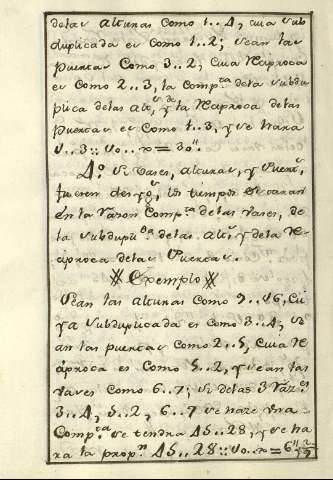 delas alturas como 1..4, cuia sub
duplicada es como 1..2; sean las
puertas como 3..2; cuia Reciproca
es como 2..3, la Comp.ta dela subdu
plica delas Alt.s y de la Reciproca delas
puertas es como 1..3, y se hara
1..3::10..x=30"
4.o Si Vases, Alturas, y Puert.s
fueren desig.s, los tiempos seran
en la razon Comp.ta de las vases, de
la subdupli.ca delas Alt.s y dela Re
ciproca delas Puertas.
Exemplo
Sean las alturas como 9..16, cu
ya subduplicada es como 3..4, se
an las puertas como 2..5, cuia Re
ciproca es como 5..2, y sean las
vases como 6..7; si delas 3 Raz.es
3..4, 5..2, 6..7 se haze una
Comp.ta se tendra 45..28, y se ha
ra la prop.n 45..28::10..x=6"